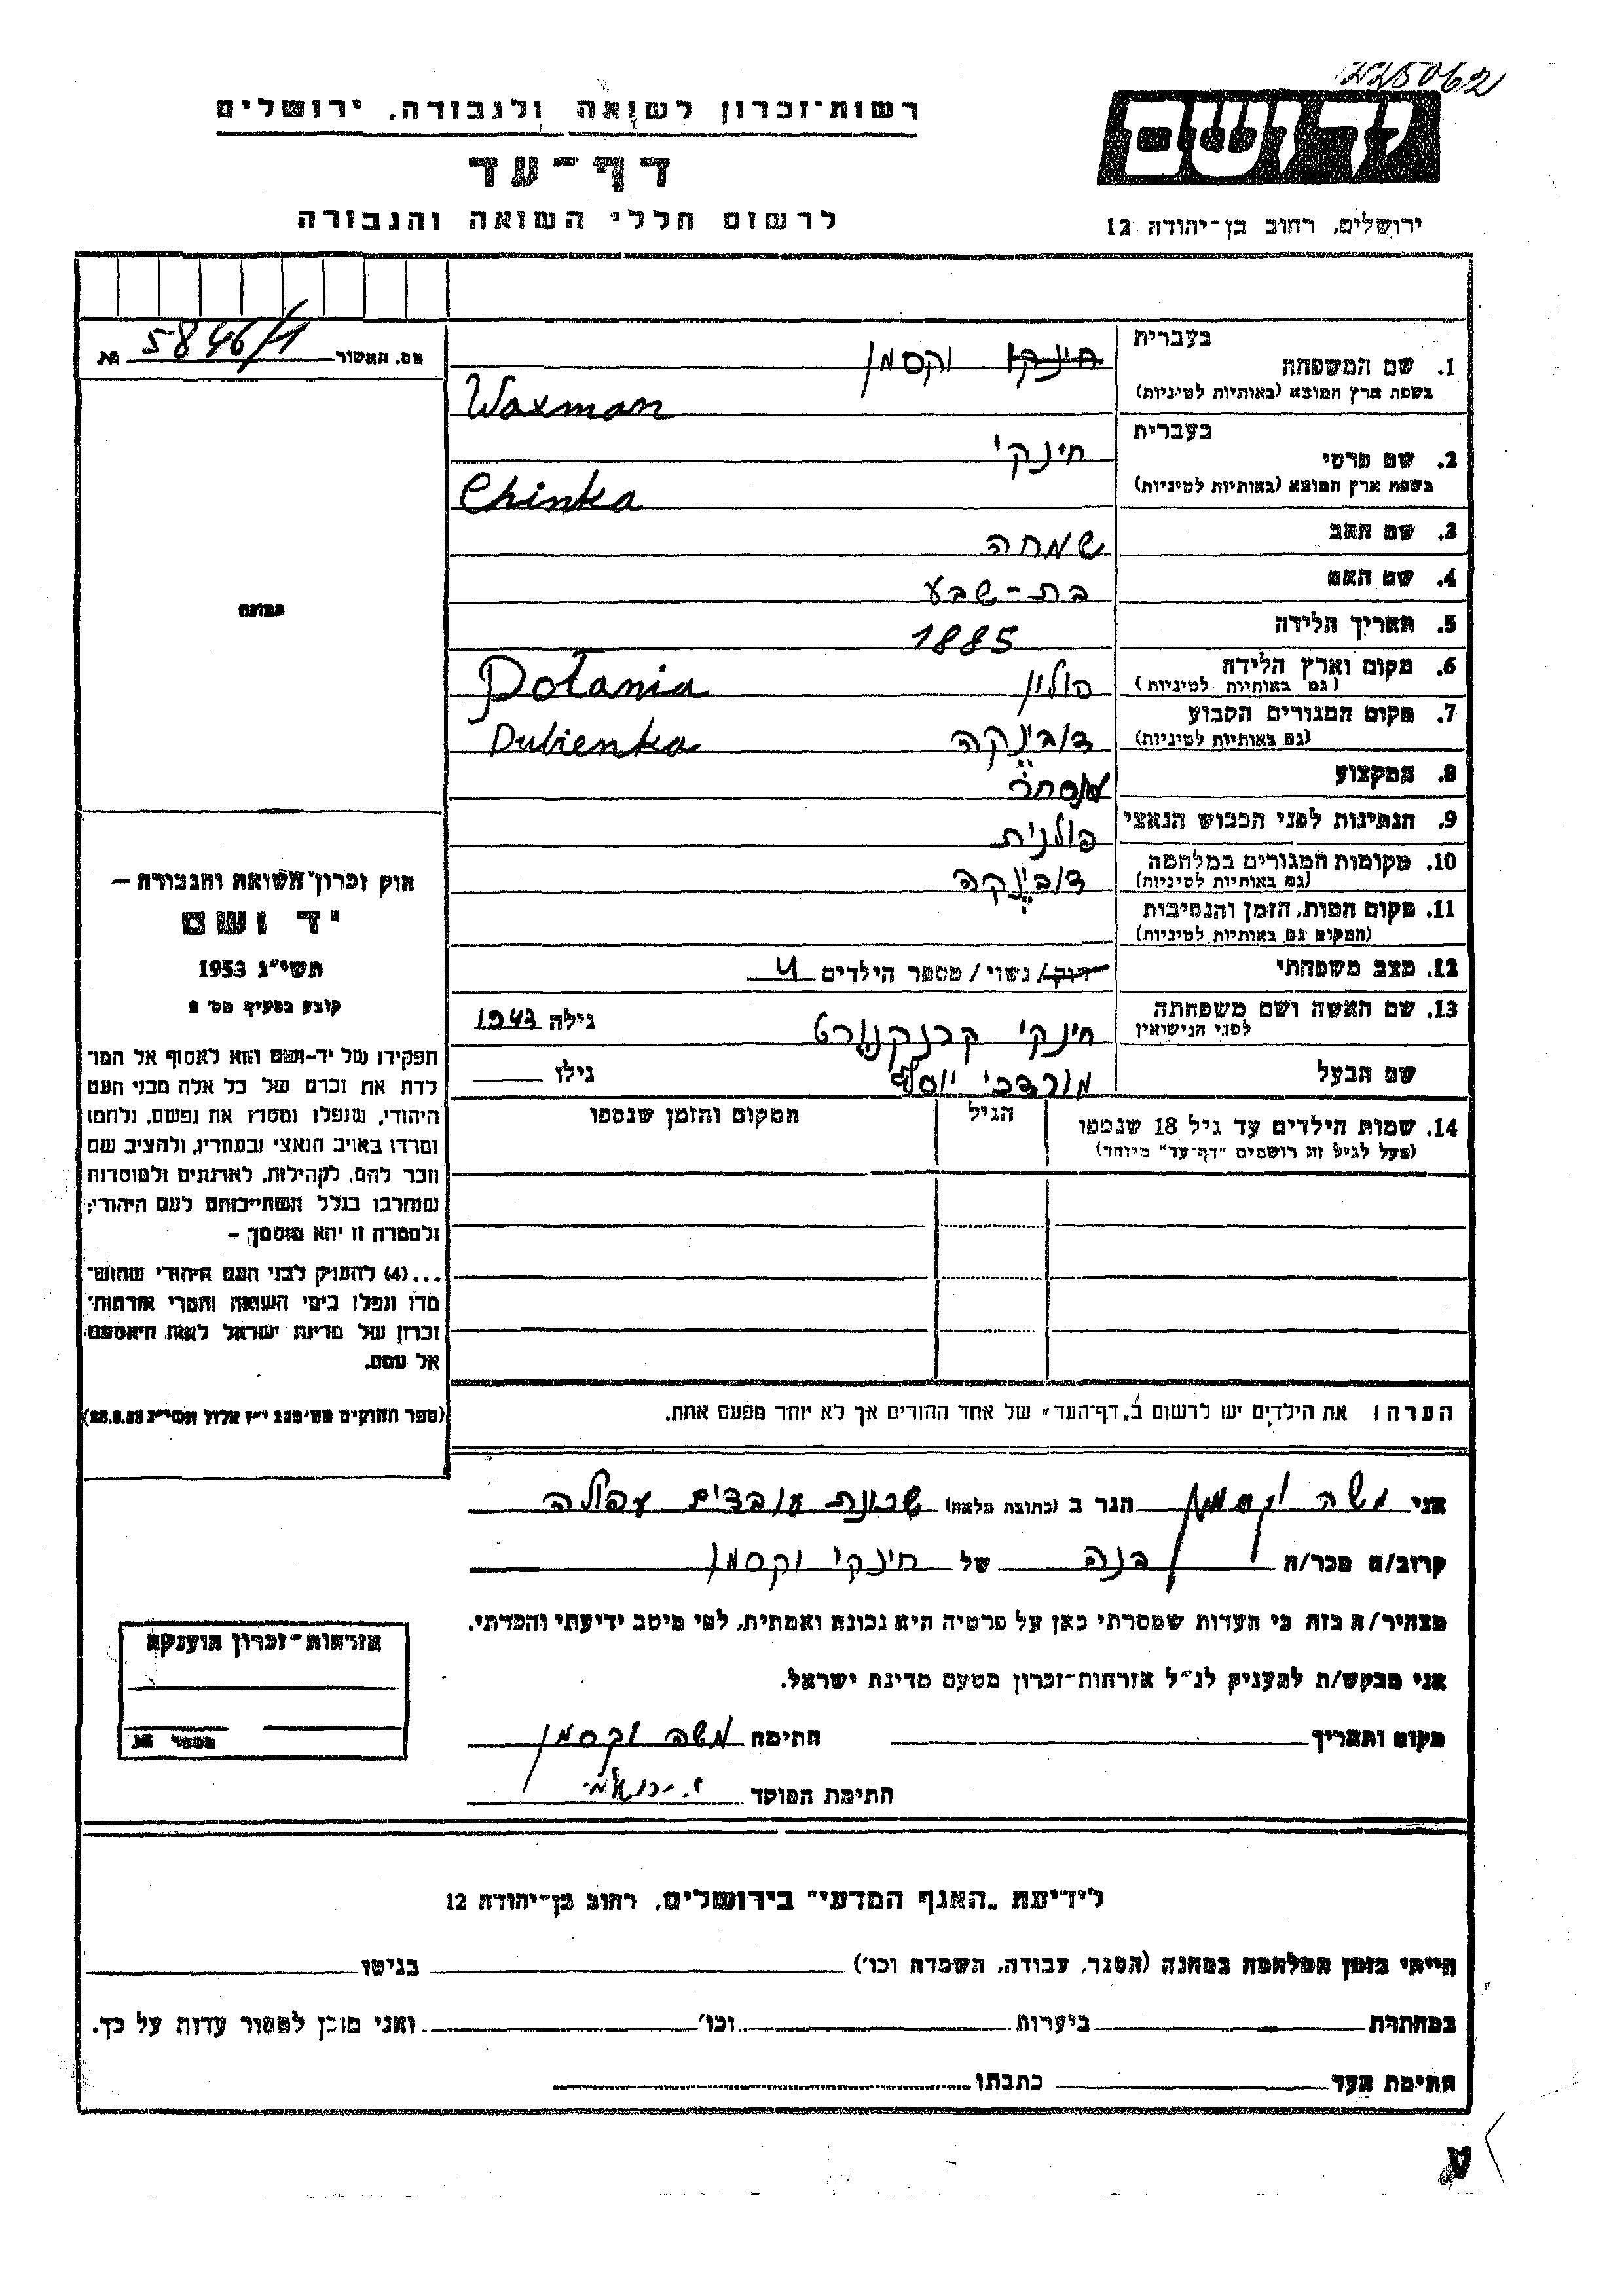 225062
רשות-זכרון לשואה ולגבורה, ירושלים
יד ושם
דף-עד
לרשום חללי השואה והגבורה
ירושלים, רחוב בן-יהודה 12
מס. האשור 5846/1 №
בעברית
1. שם המשפחה חינקי וקסמן
בשפת ארץ המוצא (באותיות לטיניות) Waxman
בעברית
2. שם פרטי חינקי
בשפת ארץ המוצא (באותיות לטיניות) Chinka
3. שם האב שמחה
4. שם האם בת-שבע
5. תאריך הלידה 1885
6. מקום וארץ הלידה פולין Polania
(גם באותיות לטיניות)
7. מקום המגורים הקבוע דובינקה Dubienka
(גם באותיות לטיניות)
8. המקצוע
9. הנתינות לפני הכבוש הנאצי פולנית
10. מקומות המגורים במלחמה דובינקה
(גם באותיות לטיניות)
11. מקום המות, הזמן והנסיבות
(המקום גם באותיות לטיניות)
12. מצב משפחתי רווק/ נשוי/ מספר הילדים 4
13. שם האשה ושם משפחתה חינקי גילה 1943
לפני הנישואין
שם הבעל מורדכי יוסף גילו
14. שמות הילדים עד גיל 18 שנספו הגיל המקום והזמן שנספו
(מעל לגיל זה רושמים "דף-עד" מיוחד)
הערה: את הילדים יש לרשום ב"דף-העד" של אחד ההורים אך לא יותר מפעם אחת.
תמונה
חוק זכרון השואה והגבורה –
יד ושם
תשי"ג 1953
קובע בסעיף מס' 2
תפקידו של יד-ושם הוא לאסוף אל המו
לדת את זכרם של כל אלה מבני העם
היהודי, שנפלו ומסרו את נפשם, נלחמו
ומרדו באויב הנאצי ובעוזריו, ולהציב שם
וזכר להם, לקהילות, לארגונים ולמוסדות
שנחרבו בגלל השתייכותם לעם היהודי;
ולמטרה זו יהא מוסמך –
...(4) להעניק לבני העם היהודי שהוש-
מדו ונפלו בימי השואה והמרי אזרחות-
זכרון של מדינת ישראל לאות היאספם
אל עמם.
(ספר החוקים מס' 132 י"ז אלול תשי"ג 28.8.53)
אני משה וקסמן הגר ב (כתובת מלאה) שכונת עובדים עפולה
קרוב/ה מכר/ה בנה של חינקי וקסמן
מצהיר/ה בזה כי העדות שמסרתי כאן על פרטיה היא נכונה ואמתית, לפי מיטב ידיעתי והכרתי.
אני מבקש/ת להעניק לנ"ל אזרחות-זכרון מטעם מדינת ישראל.
מקום ותאריך חתימה משה וקסמן
חתימת המוסד
אזרחות-זכרון הוענקה
מספר №
לידיעת "האגף המדעי" בירושלים, רחוב בן-יהודה 12
הייתי בזמן המלחמה במחנה (הסגר, עבודה, השמדה וכו') בגיטו
במחתרת ביערות וכו' ואני מוכן למסור עדות על כך.
חתימת העד כתבתו